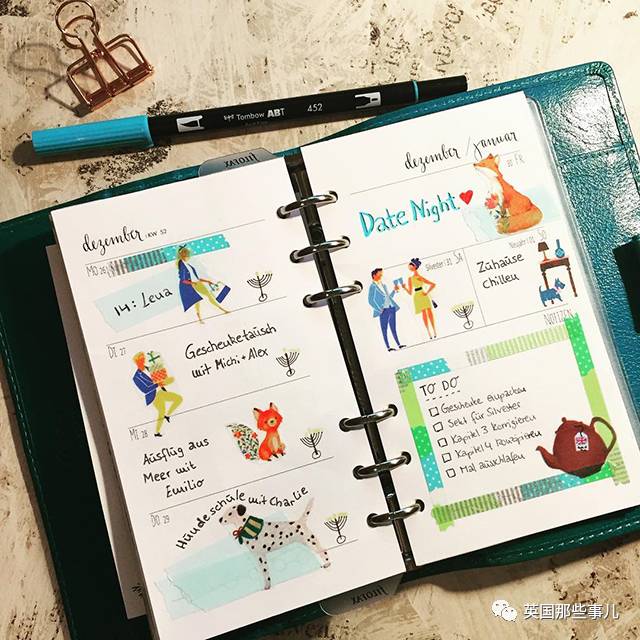 Tombow ABT 452
dezember : KW 52
MO 26
14: Lena
DI 27
Geschenketausch
mit Michi + Alex
MI 28
Ausflug ans
Meer mit
Emilio
DO 29
Hundeschule mit Charlie
dezember / januar
30 FR
Date Night
Silvester | 31 SA
Neujahr | 01 SO
Zuhause
chillen
NOTIZEN
TO DO
Geschenke einpacken
Sekt für Silvester
Kapitel 3 korrigieren
Kapitel 4
Mal ausschlafen
英国那些事儿